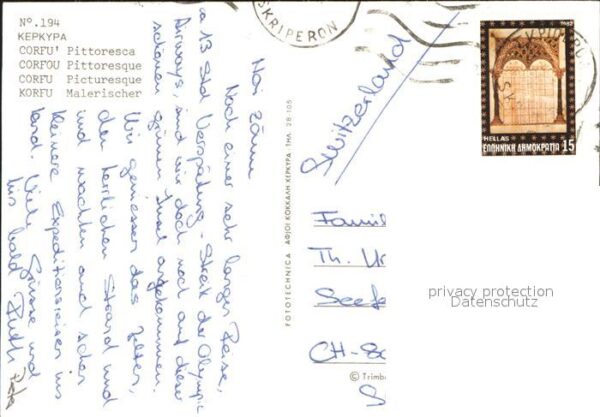 No.194
ΚΕΡΚΥΡΑ
CORFU' Pittoresca
CORFOU Pittoresque
CORFU Picturesque
KORFU Malerischer
SKRIPERON
HELLAS
ΕΛΛΗΝΙΚΗ ΔΗΜΟΚΡΑΤΙΑ 15
Hoi zäme
Nach einer sehr langen Reise,
ca 13 Std Verspätung - Streik der Olympic
Airways, sind wir doch noch auf dieser
schönen grünen Insel angekommen.
Wir geniessen das Zelten,
den herrlichen Strand und
und machten auch schon
kleinere Expeditionsreisen ins
Land. Viele Grüsse und
bis bald Ruth
FOTOTECHNICA ΑΦΙΟΙ ΚΟΚΚΑΛΗ ΚΕΡΚΥΡΑ · ΤΗΛ 28-105
Switzerland
Famil
Th.
Seef
CH-
privacy protection
Datenschutz
© Trimb